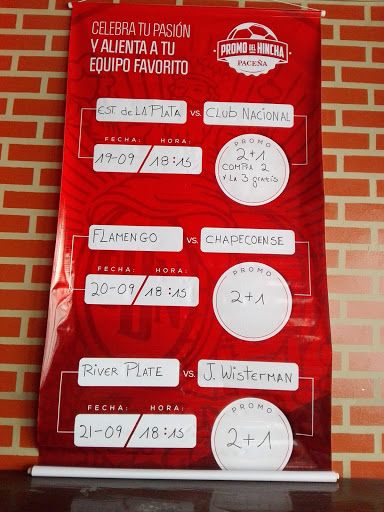 CELEBRA TU PASIÓN
Y ALIENTA A TU
EQUIPO FAVORITO
PROMO DEL HINCHA
PACEÑA
EST. de LA PLATA VS. CLUB NACIONAL
FECHA: HORA:
19-09 / 18:15
PROMO
2+1
COMPRA 2
Y LA 3 gratis
FLAMENGO VS. CHAPECOENSE
FECHA: HORA:
20-09 / 18:15
PROMO
2+1
RIVER PLATE VS. J. WISTERMAN
FECHA: HORA:
21-09 / 18:15
PROMO
2+1